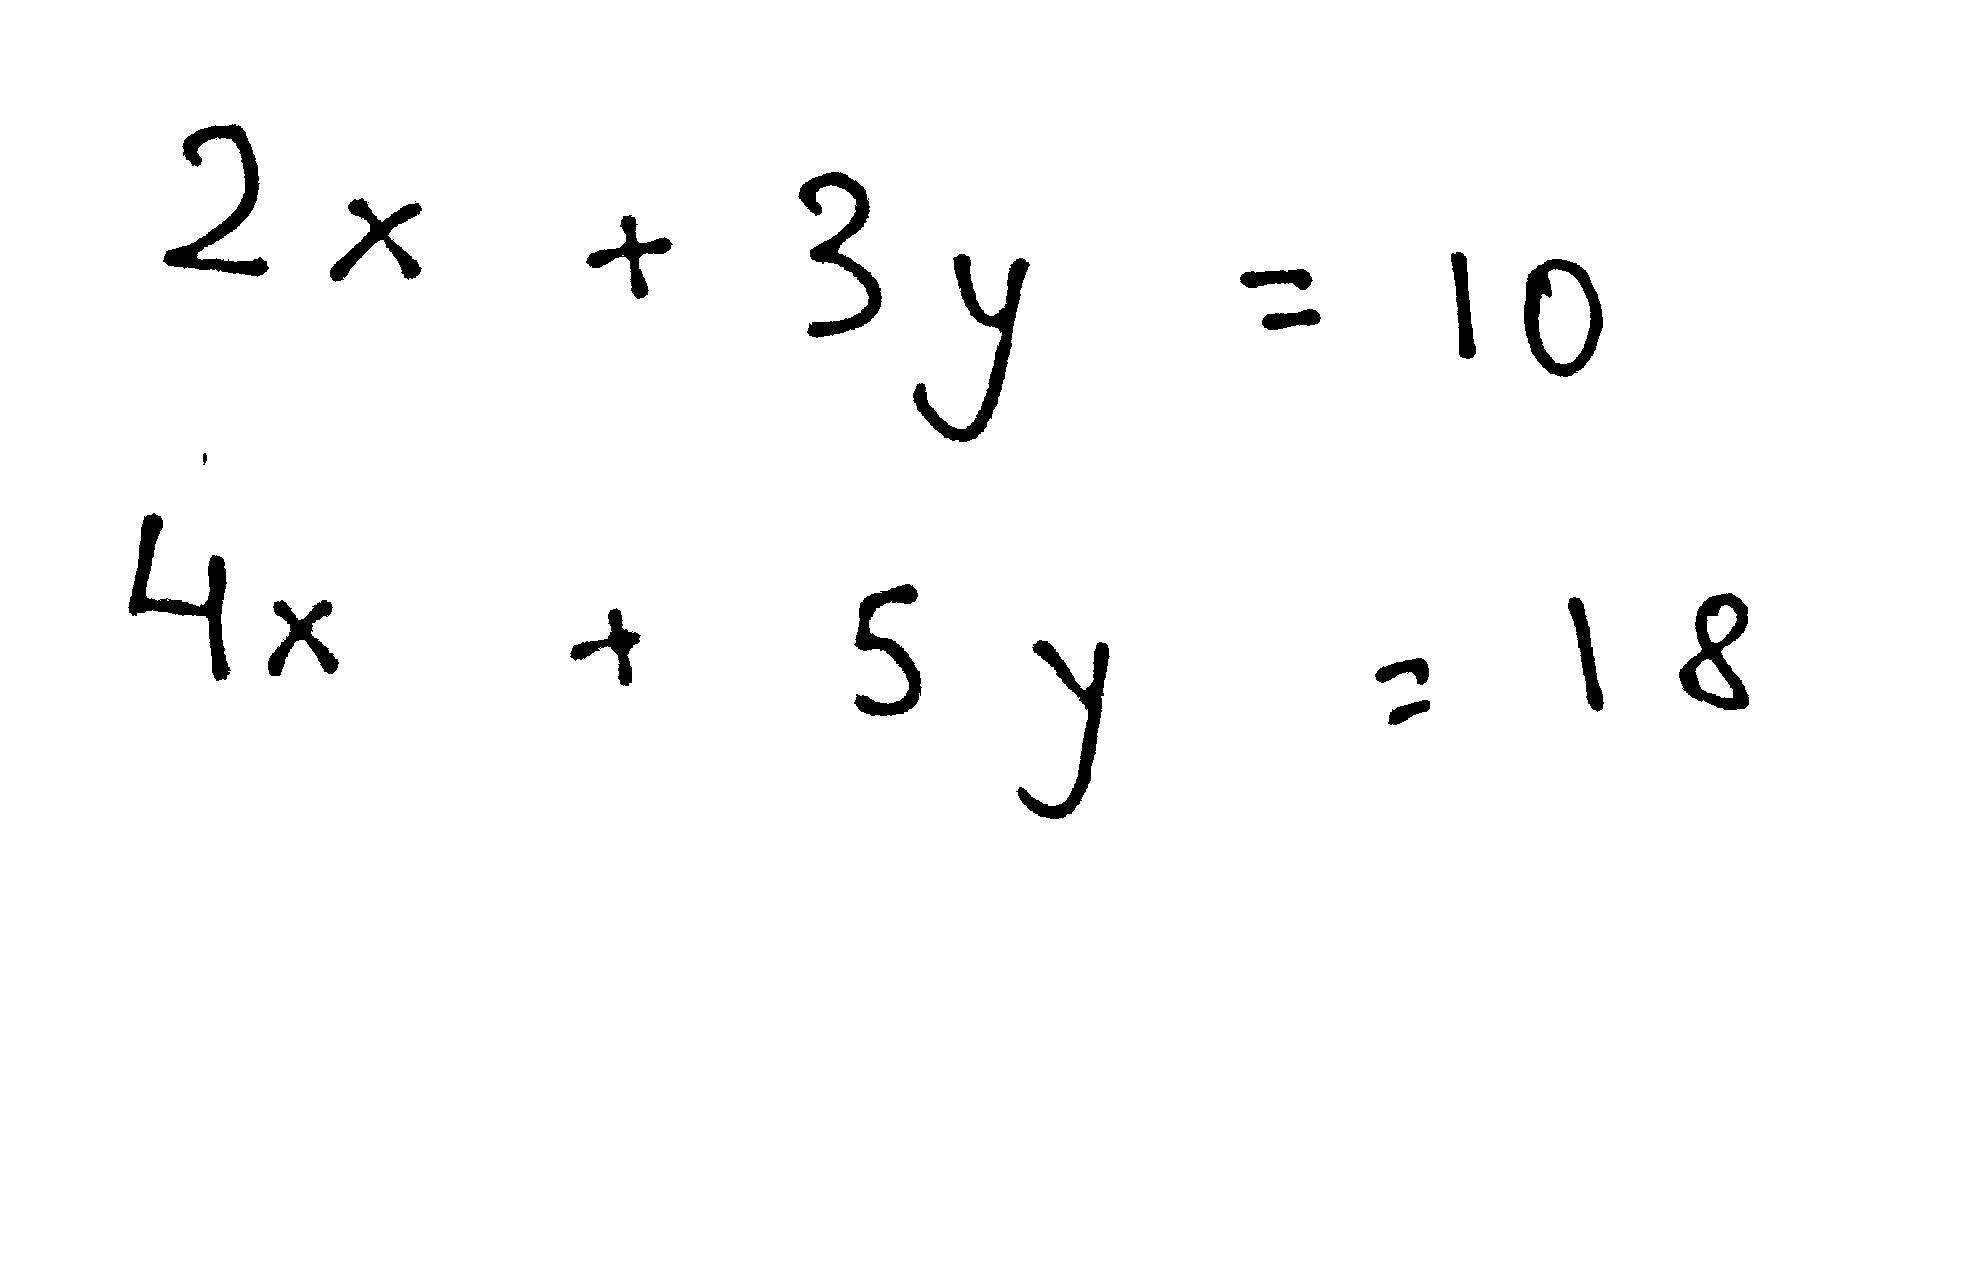 2x + 3y = 10
4x + 5y = 18